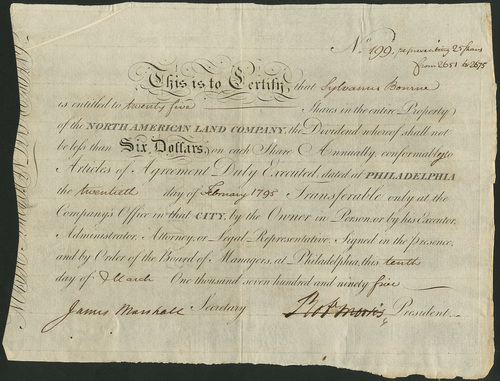 No. 199, representing 25 shares
from 2651 to 2675
This is to Certify, that Sylvanus Bourne
is entitled to twenty five Shares in the entire Property
of the NORTH AMERICAN LAND COMPANY, the Dividend whereof shall not
be less than Six Dollars, on each Share Annually, conformably to
Articles of Agreement Duly Executed, dated at PHILADELPHIA
the twentieth day of February 1795 Transferable only at the
Company's Office in that CITY, by the Owner in Person, or by his Executor,
Administrator, Attorney, or Legal Representative. Signed in the presence,
and by Order of the Board of Managers, at Philadelphia, this tenth
day of March One thousand seven hundred and ninety five
James Marshall Secretary Rob Morris President